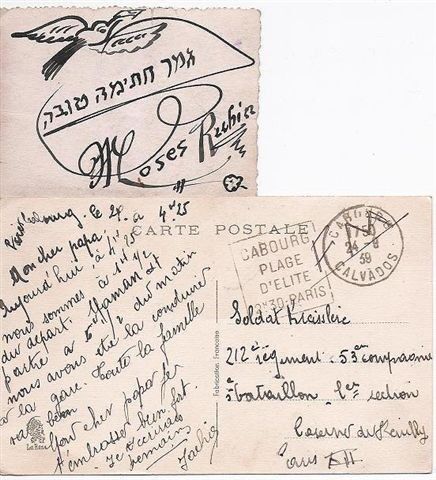 גמר חתימה טובה
Moses Rubin
Cabourg, le 24. à 4h25
CARTE POSTALE
CABOURG
PLAGE
D'ELITE
2H30 PARIS
CABOURG
24-8
39
CALVADOS
Mon cher papa,
Aujourd'hui à 4h25
nous sommes à 1h 1/2
du départ. Maman est
partie à 5h 1/2 du matin
nous avons été la conduire
à la gare. Toute la famille
va bien
Mon cher papa je
t'embrasse bien fort.
Je t'écrirais
demain
Soldat
212e régiment 53e compagnie
bataillon 1er section
Caserne de Reuilly
Paris XII
Fabrication Française